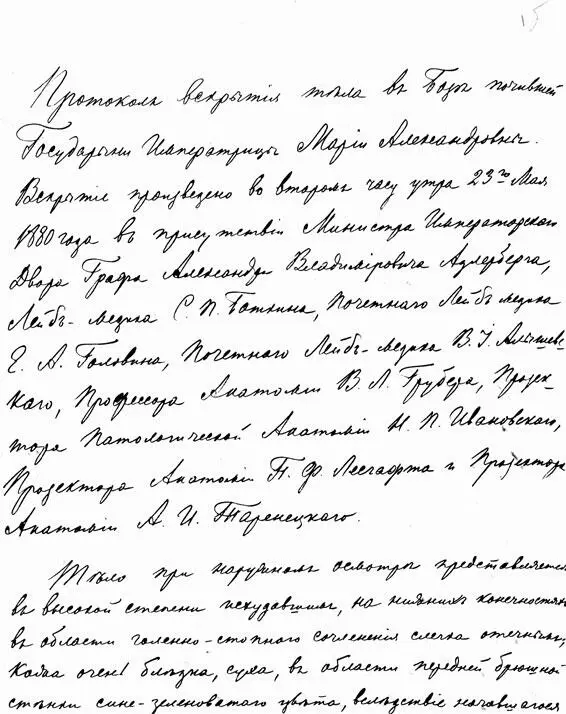 15
Протоколъ вскрытія тѣла въ Бозѣ почившей
Государыни Императрицы Маріи Александровны.
Вскрытіе произведено во второмъ часу утра 23го Мая
1880 года въ присутствіи Министра Императорскаго
Двора Графа Александра Владиміровича Адлерберга,
Лейбъ-медика С. П. Боткина, Почетнаго Лейбъ медика
Е. А. Головина, Почетнаго Лейбъ-медика В. І. Алышев-
скаго, Профессора Анатоміи В. Л. Грубера, Прозек-
тора Патологической Анатоміи Н. П. Ивановскаго,
Прозектора Анатоміи П. Ф. Лесгафта и Прозектора
Анатоміи А. И. Таренецкаго.
Тѣло при наружномъ осмотрѣ представляется
въ высокой степени исхудавшимъ, на нижнихъ конечностяхъ
въ области голенно-стопного сочлененія слегка отечнымъ,
кожа очень блѣдна, суха, въ области передней брюшной
стѣнки сине-зеленоватаго цвѣта, вслѣдствіе начавшагося